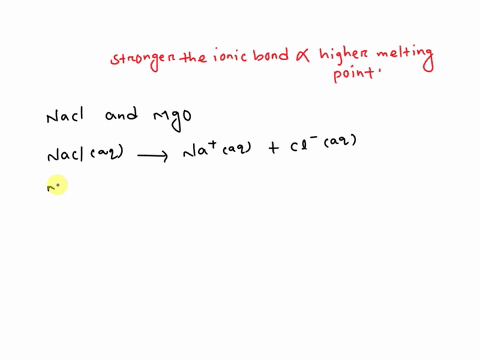 stronger the ionic bond ∝ higher melting
point.
Nacl and MgO
Nacl (aq) ⟶ Na⁺ (aq) + Cl⁻ (aq)